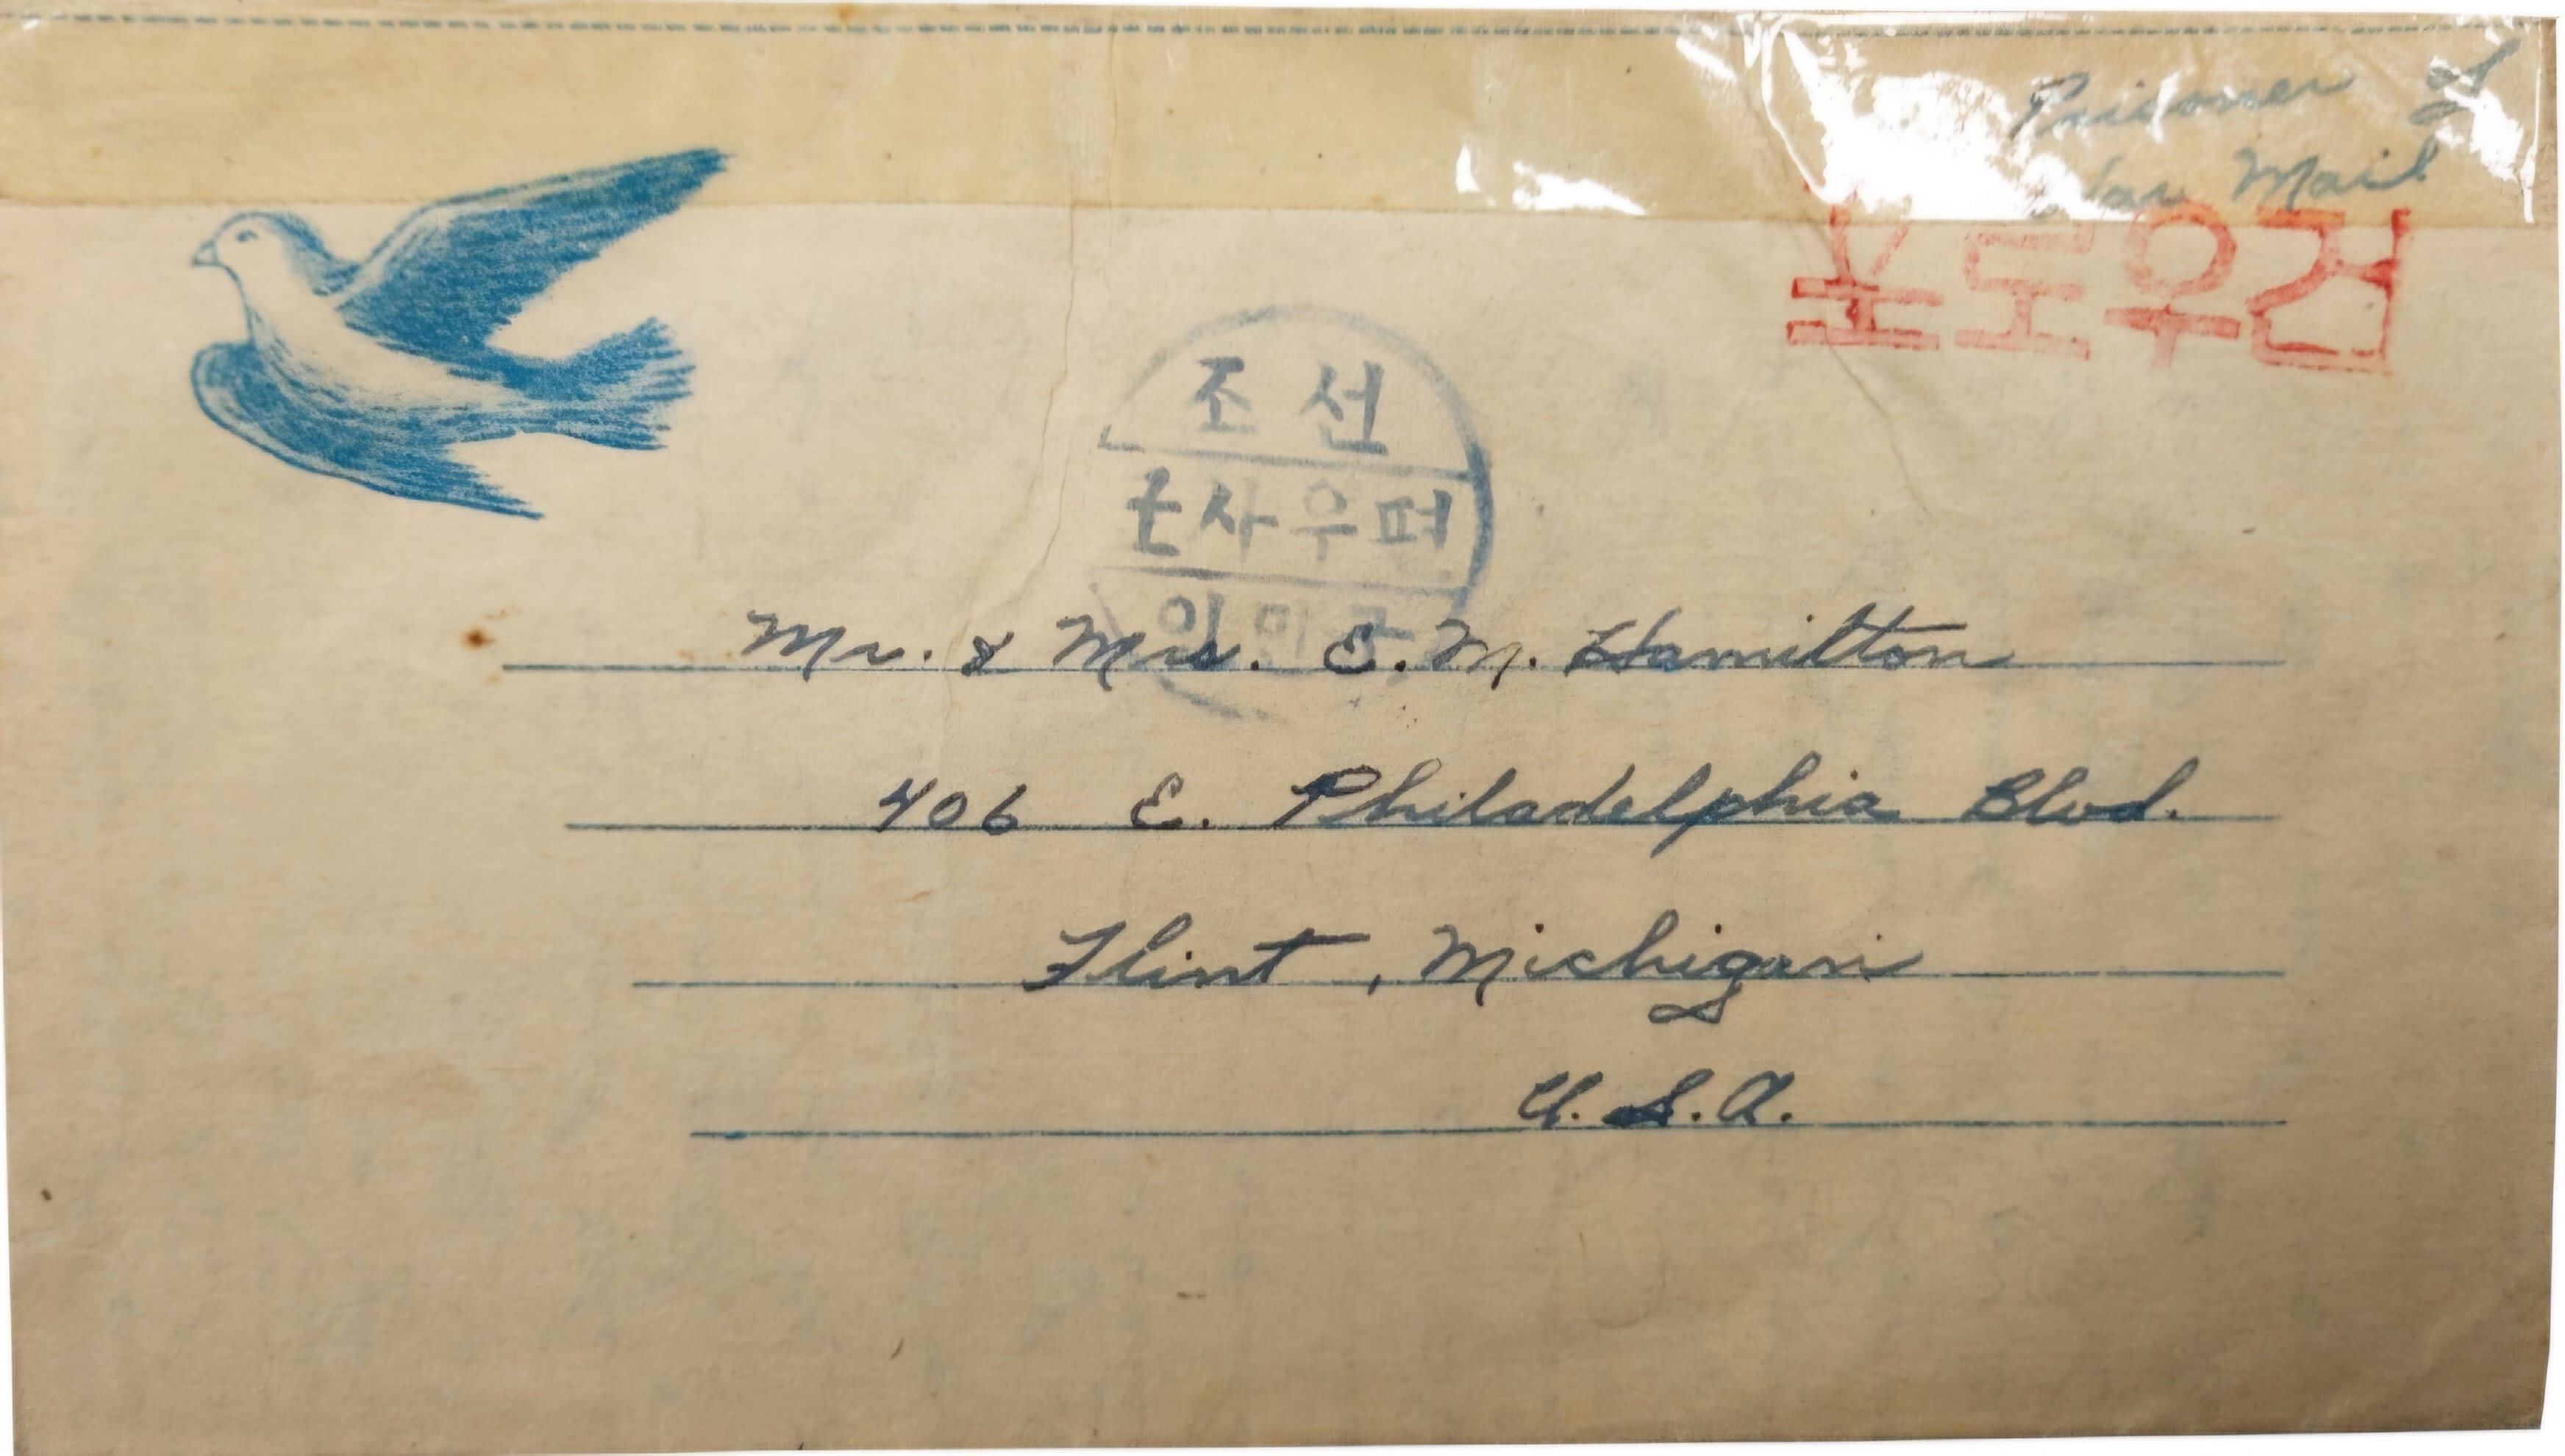 Prisoner of
War Mail
포로우건
조선
군사우편
인민군
Mr. & Mrs. E. M. Hamilton
406 E. Philadelphia Blvd.
Flint, Michigan
U.S.A.